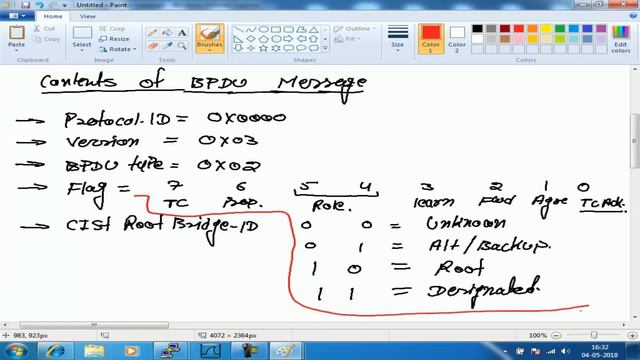 Untitled - Paint
Home View
Paste Cut Copy Select Crop Resize Rotate Brushes Outline Fill Size Color 1 Color 2 Edit colors
Clipboard Image Tools Shapes Colors
Contents of BPDU Message
→ Protocol-ID = 0x0000
→ Version = 0x03
→ BPDU type = 0x02
→ Flag = 7 6 5 4 3 2 1 0
TC Prop. Role. learn Fwd Agre TC Ack.
→ CIST Root Bridge-ID 0 0 = Unknown
0 1 = Alt/Backup.
1 0 = Root
1 1 = Designated
983, 923px 4072 × 2364px 100%
16:32
04-05-2018